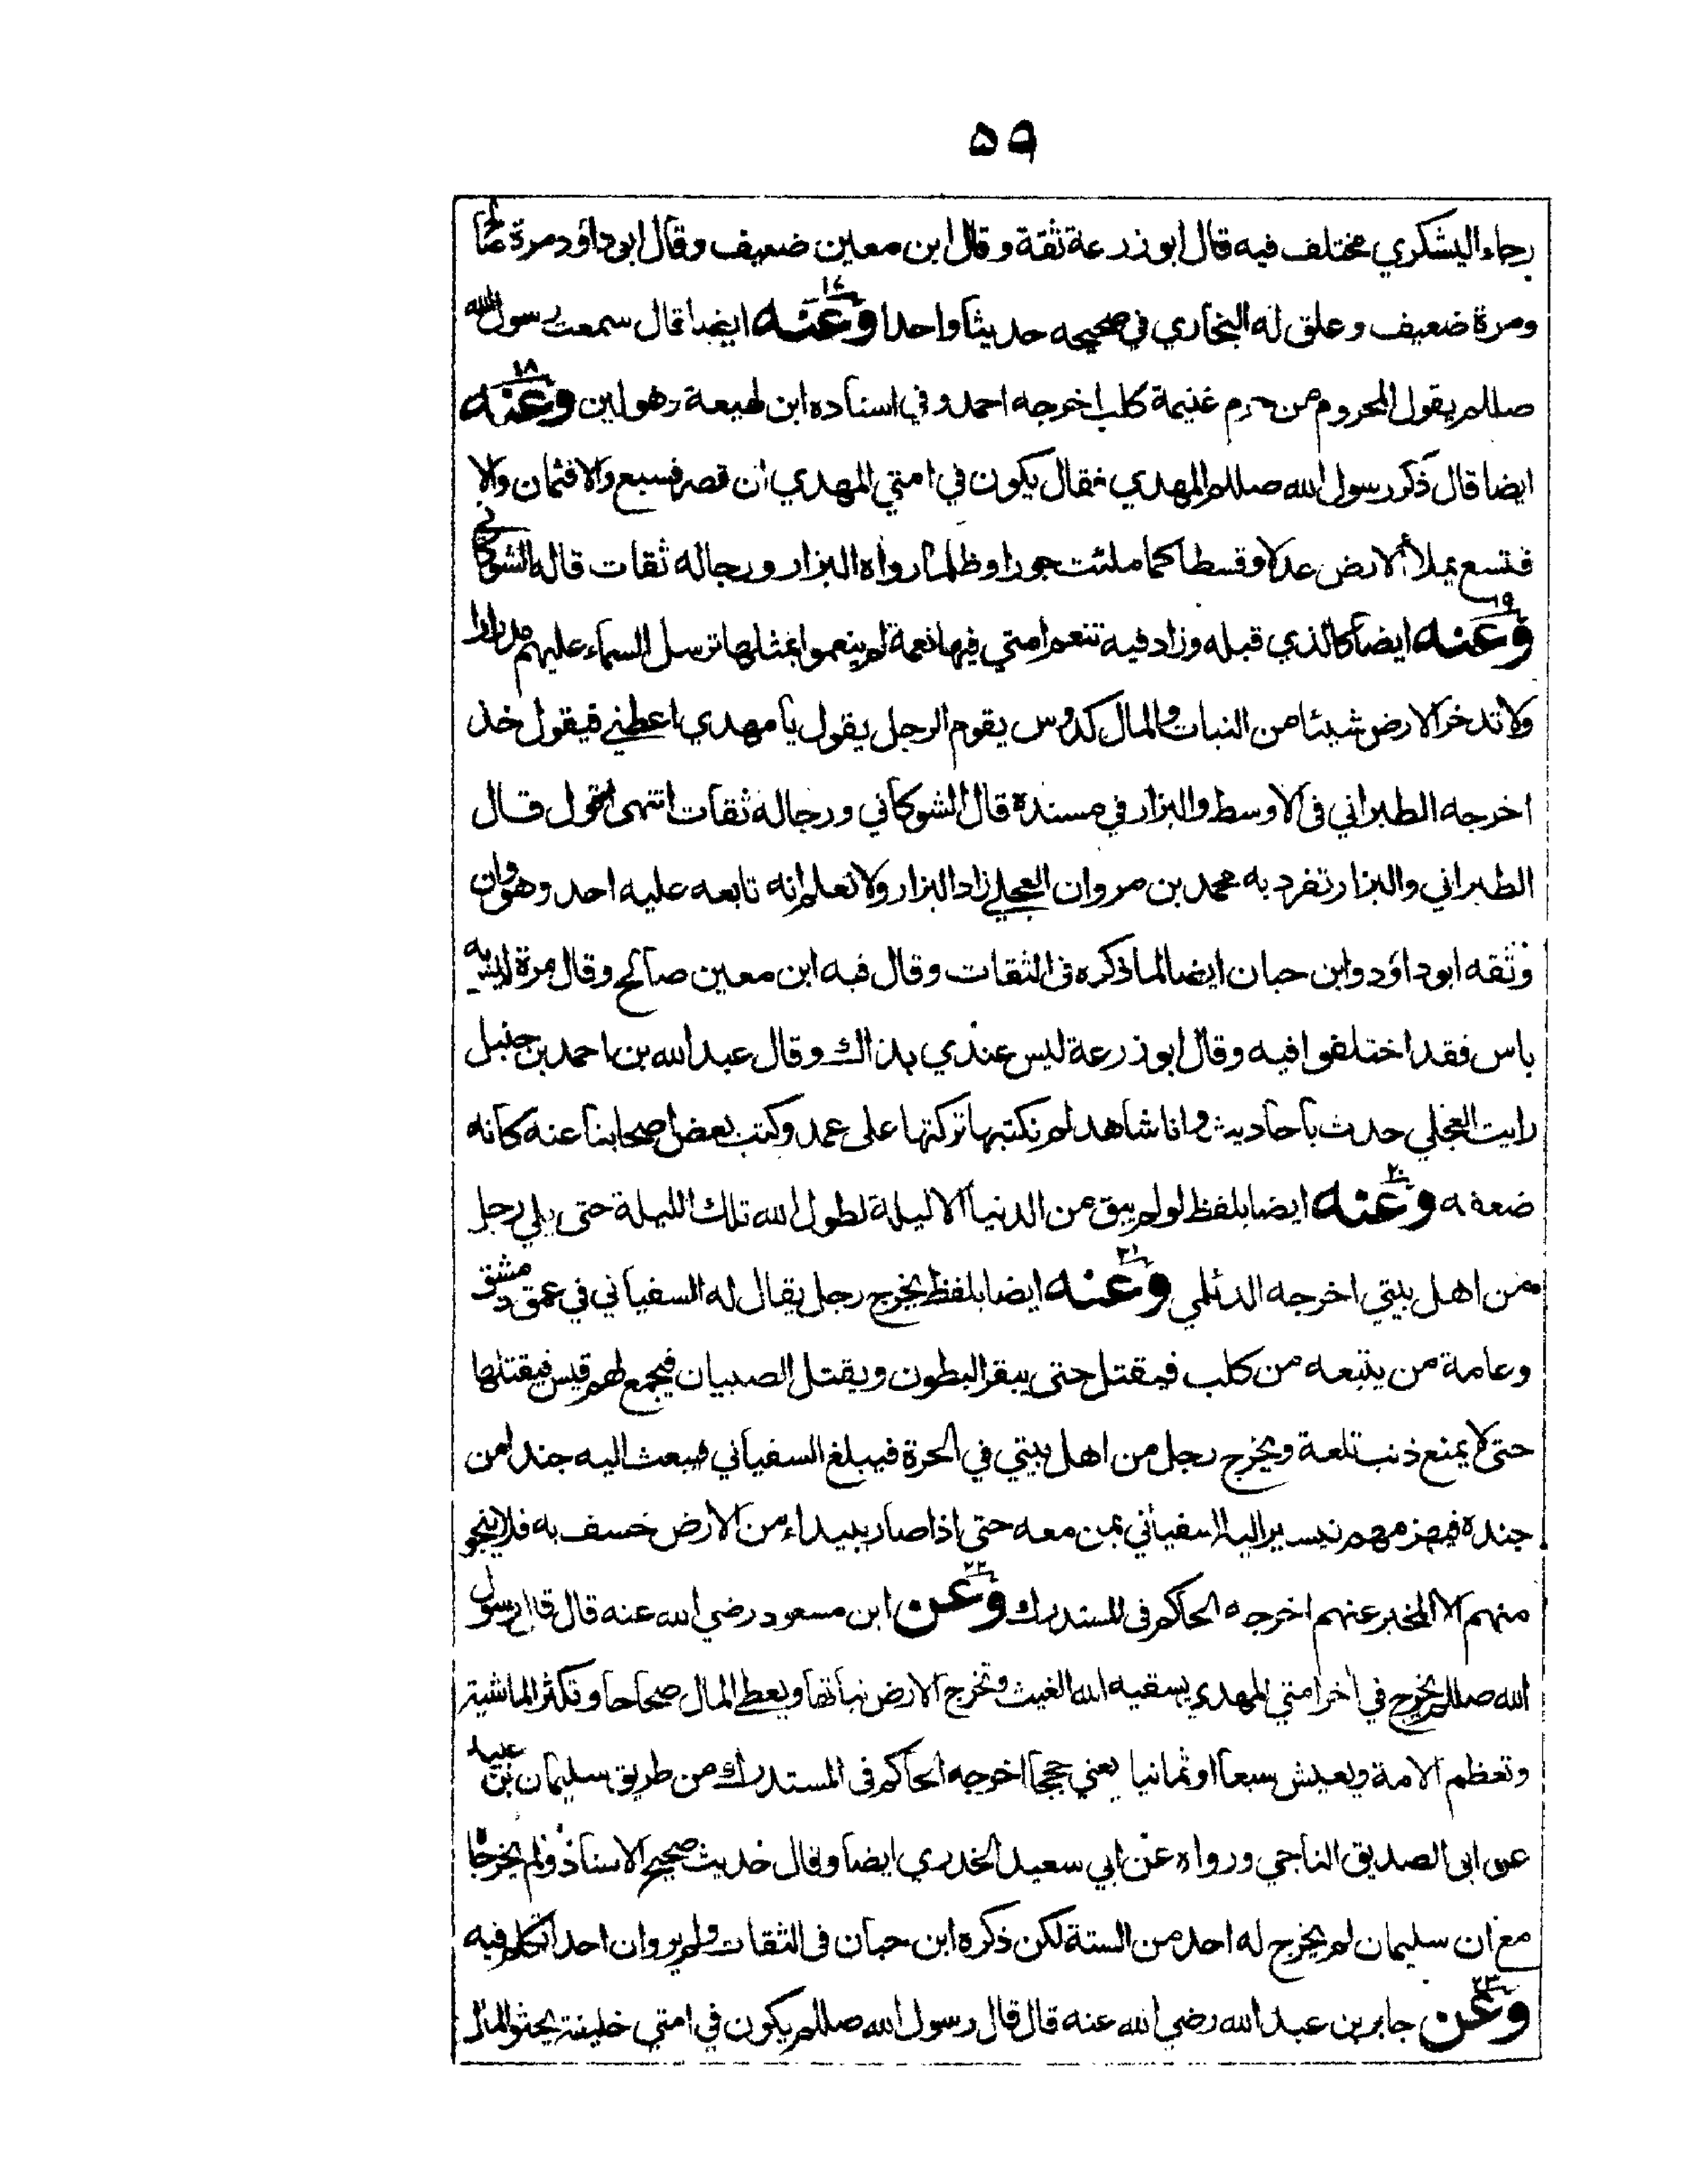 ۵۹
رجاء اليشكري مختلف فيه قال ابو زرعة ثقة وقال ابن معين ضعيف وقال ابو داؤد مرة صالح
ومرة ضعيف وعلق له البخاري في صحيحه حديثا واحدا وعنه ايضا قال سمعت رسول الله
صللم يقول المحروم من حرم غنيمة كلب اخرجه احمد وفي اسناده ابن لهيعة وهو لين وعنه ١٨
ايضا قال ذكر رسول الله صللم المهدي فقال يكون في امتي المهدي ان قصر فسبع والا فثمان والا
فتسع يملأ الارض عدلا وقسطا كما ملئت جورا وظلما رواه البزار ورجاله ثقات قاله الشوكاني
وعنه ١٩ ايضا كالذي قبله وزاد فيه تتنعم امتي فيها نعمة لم ينعموا بمثلها ترسل السماء عليهم مدرارا
ولا تدخر الارض شيئا من النبات والمال كدوس يقوم الرجل يقول يا مهدي اعطني فيقول خذ
اخرجه الطبراني في الاوسط والبزار في مسنده قال الشوكاني ورجاله ثقات انتهى اقول قال
الطبراني والبزار تفرد به محمد بن مروان العجلي زاد البزار ولا نعلم انه تابعه عليه احد وهو وان
وثقه ابو داؤد وابن حبان ايضا لما ذكره في الثقات وقال فيه ابن معين صالح وقال مرة ليس به
باس فقد اختلفوا فيه وقال ابو زرعة ليس عندي بذاك وقال عبد الله بن احمد بن حنبل
رايت العجلي حدث باحاديث وانا شاهد لم نكتبها تركتها على عمد وكتب بعض اصحابنا عنه كانه
ضعفه وعنه ٢٠ ايضا بلفظ لو لم يبق من الدنيا الا ليلة لطول الله تلك الليلة حتى يلي رجل
من اهل بيتي اخرجه الدئلمي وعنه ٢١ ايضا بلفظ يخرج رجل يقال له السفياني في عمق دمشق
وعامة من يتبعه من كلب فيقتل حتى يبقر البطون ويقتل الصبيان فيجمع لهم قيس فيقتلها
حتى لا يمنع ذنب تلعة ويخرج رجل من اهل بيتي في الحرة فيبلغ السفياني فيبعث اليه جندا من
جنده فيهزمهم فيسير اليه السفياني بمن معه حتى اذا صار ببيداء من الارض خسف به فلا ينجو
منهم الا المخبر عنهم اخرجه الحاكم في المستدرك وعن ٢٢ ابن مسعود رضي الله عنه قال قال رسول
الله صللم يخرج في اخر امتي المهدي يسقيه الله الغيث وتخرج الارض نباتها ويعطى المال صحاحا وتكثر الماشية
وتعظم الامة ويعيش سبعا او ثمانيا يعني حججا اخرجه الحاكم في المستدرك من طريق سليمان بن عبيد
عن ابي الصديق الناجي ورواه عن ابي سعيد الخدري ايضا وقال حديث صحيح الاسناد ولم يخرجاه
مع ان سليمان لم يخرج له احد من الستة لكن ذكره ابن حبان في الثقات ولم يرو ان احدا تكلم فيه
وعن ٢٣ جابر بن عبد الله رضي الله عنه قال قال رسول الله صللم يكون في امتي خليفة يحثو المال